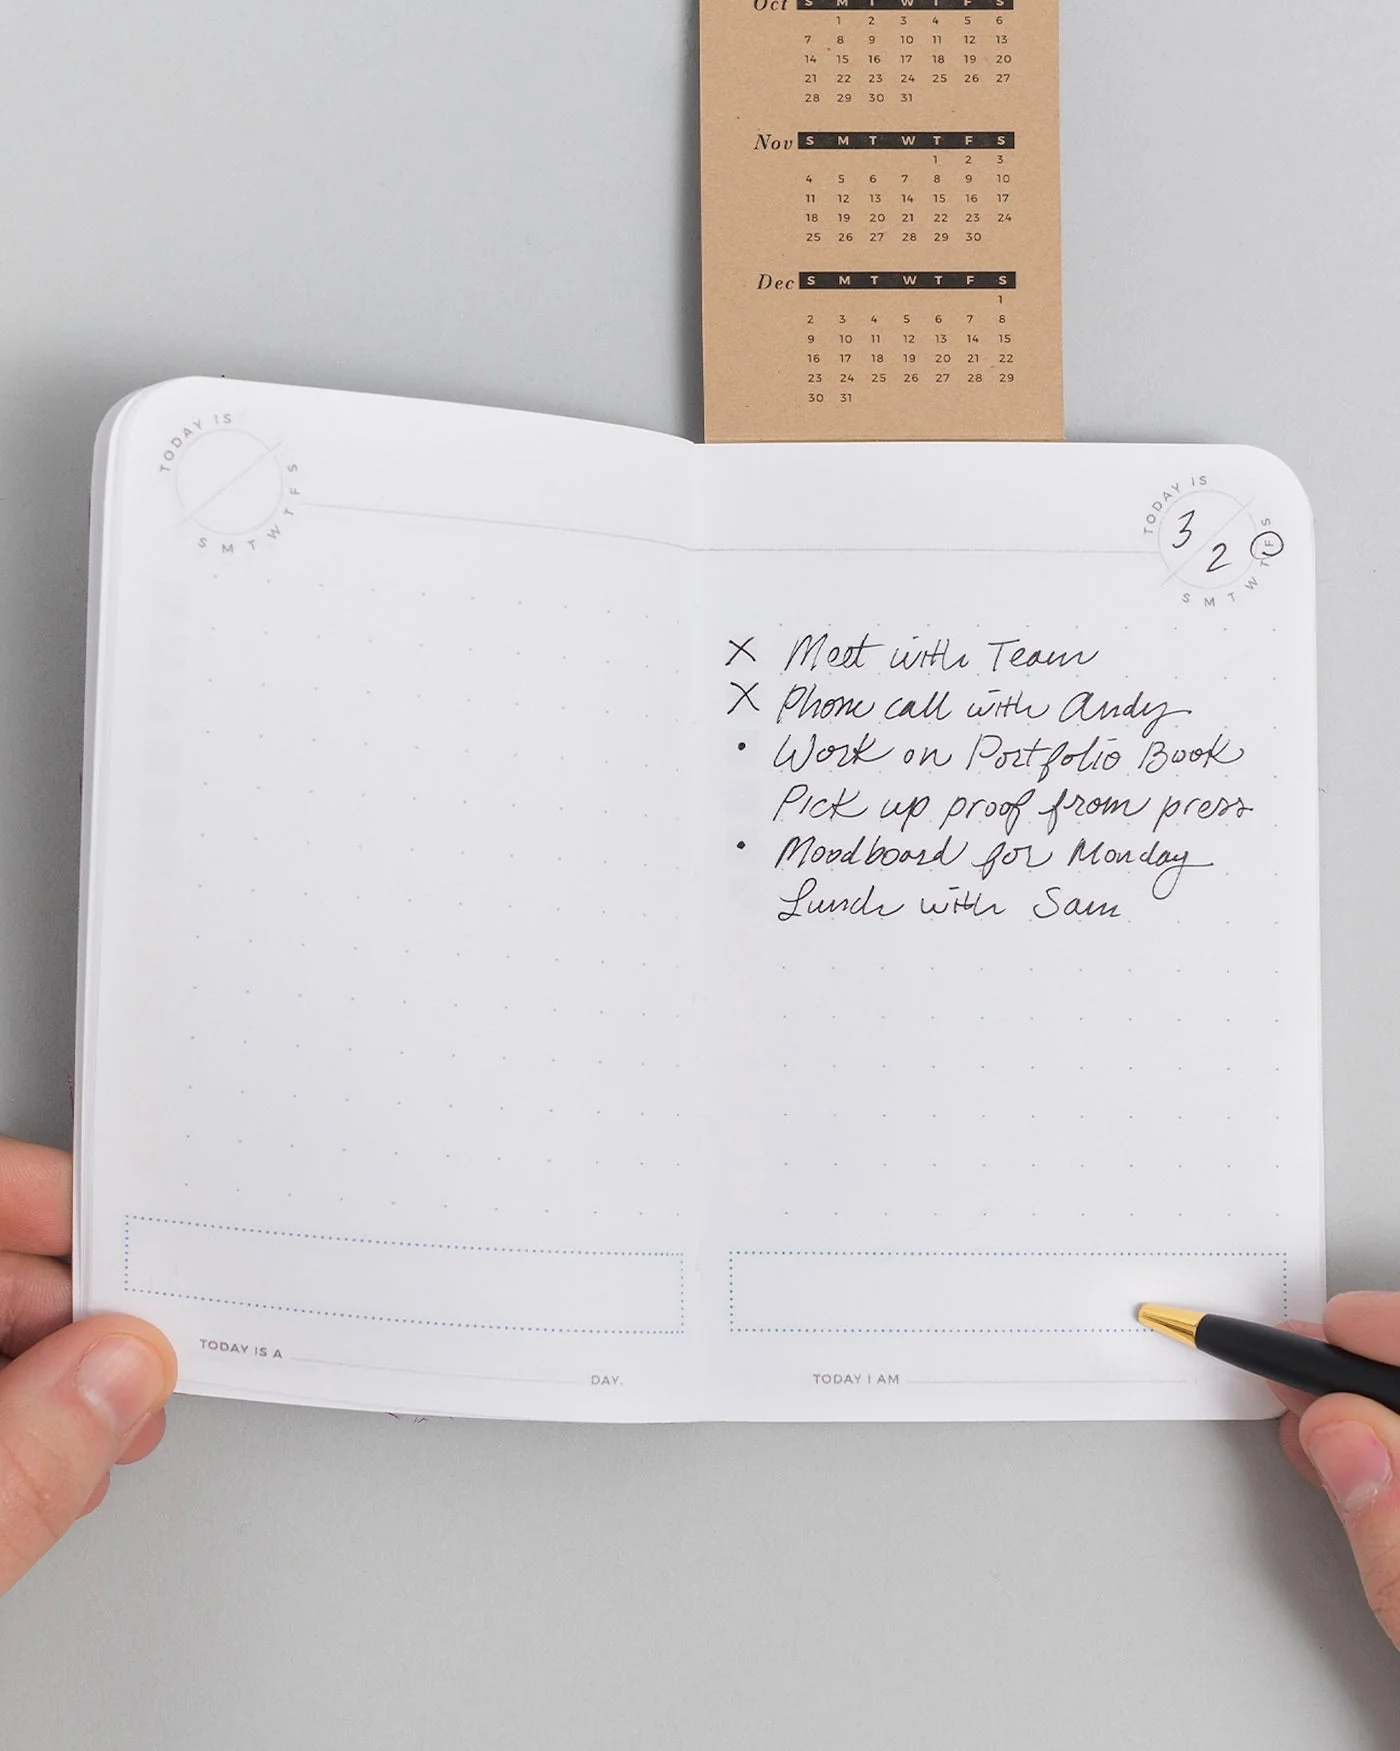 Oct S M T W T F S
1 2 3 4 5 6
7 8 9 10 11 12 13
14 15 16 17 18 19 20
21 22 23 24 25 26 27
28 29 30 31
Nov S M T W T F S
1 2 3
4 5 6 7 8 9 10
11 12 13 14 15 16 17
18 19 20 21 22 23 24
25 26 27 28 29 30
Dec S M T W T F S
1
2 3 4 5 6 7 8
9 10 11 12 13 14 15
16 17 18 19 20 21 22
23 24 25 26 27 28 29
30 31
TODAY IS
S M T W T F S
TODAY IS A
DAY.
TODAY IS
3 2
S M T W T F S
X Meet with Team
X Phone call with Andy
• Work on Portfolio Book
Pick up proof from press
• Moodboard for Monday
Lunch with Sam
TODAY I AM